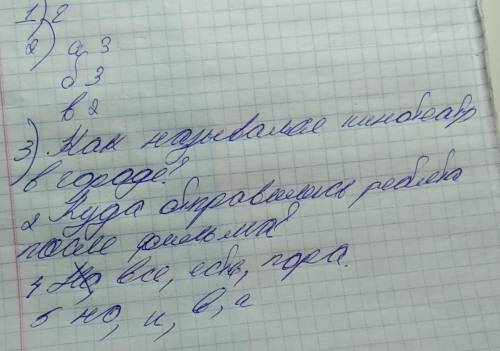 1) 2
2) а 3
б 3
в 2
3) Как назывался кинотеатр
в городе?
2 Куда отправились ребята
после фильма?
4 Но, все, есть, пора.
5 но, и, в, а